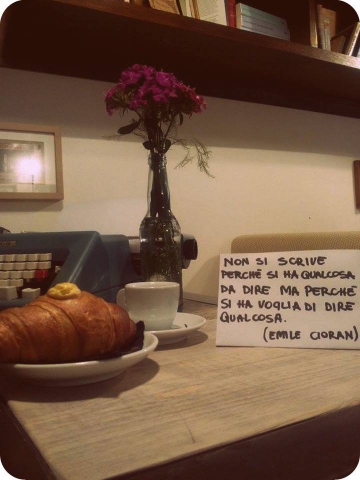 NON SI SCRIVE
PERCHÉ SI HA QUALCOSA
DA DIRE MA PERCHÉ
SI HA VOGLIA DI DIRE
QUALCOSA.
(EMILE CIORAN)